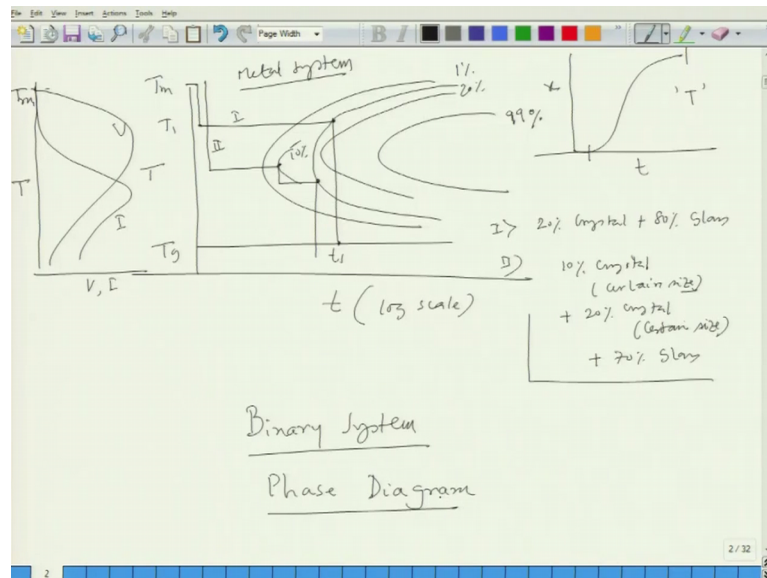 File Edit View Insert Actions Tools Help
Page Width
B I
metal system
Tm
V
T
I
V, I
Tm
T1
T
Tg
I
II
10%
1%
20%
99%
t1
t (log scale)
x
'T'
t
I> 20% Crystal + 80% Glass
II) 10% Crystal
(certain size)
+ 20% Crystal
(certain size)
+ 70% Glass
Binary System
Phase Diagram
2/32
2